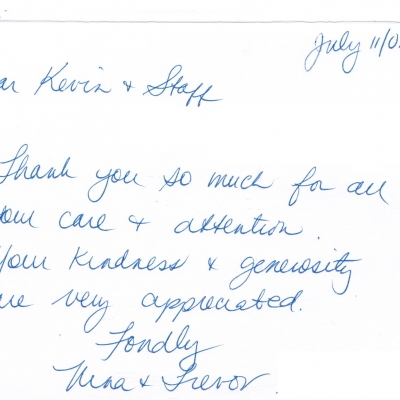 July 11/0
ar Kevin + Staff
Thank you so much for all
our care + attention.
Your kindness + generosity
re very appreciated.
Fondly
Nina + Trevor